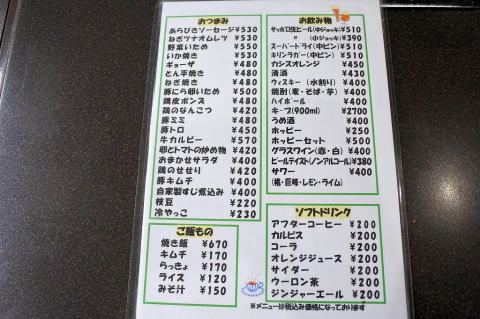 おつまみ
あらびきソーセージ ¥530
ねぎツナオムレツ ¥530
野菜いため ¥550
いか焼き ¥530
ギョーザ ¥480
とん平焼き ¥480
ねぎ焼き ¥480
豚にら卵いため ¥500
鶏皮ポンズ ¥480
鶏のなんこつ ¥420
豚ミミ ¥480
豚トロ ¥450
牛カルビー ¥570
卵とトマトの炒め物 ¥420
おまかせサラダ ¥400
鶏のせせり ¥420
豚キムチ ¥400
自家製すじ煮込み ¥400
枝豆 ¥220
冷やっこ ¥230
ご飯もの
焼き飯 ¥670
キムチ ¥170
らっきょ ¥170
ライス ¥120
みそ汁 ¥150
お飲み物
サッポロ生ビール(中ジョッキ) ¥510
〃 (小ジョッキ) ¥390
スーパードライ(中ビン) ¥510
キリンラガー(中ビン) ¥510
カシスオレンジ ¥450
清酒 ¥430
ウィスキー (水割り) ¥400
焼酎(麦・そば・芋) ¥400
ハイボール ¥400
キープ(900ml) ¥2700
うめ酒 ¥400
ホッピー ¥250
ホッピーセット ¥500
グラスワイン(赤・白) ¥400
ビールテイスト(ノンアルコール) ¥380
サワー ¥400
(桃・巨峰・レモン・ライム)
ソフトドリンク
アフターコーヒー ¥200
カルピス ¥200
コーラ ¥200
オレンジジュース ¥200
サイダー ¥200
ウーロン茶 ¥200
ジンジャーエール ¥200
※メニューは税込み価格になっております